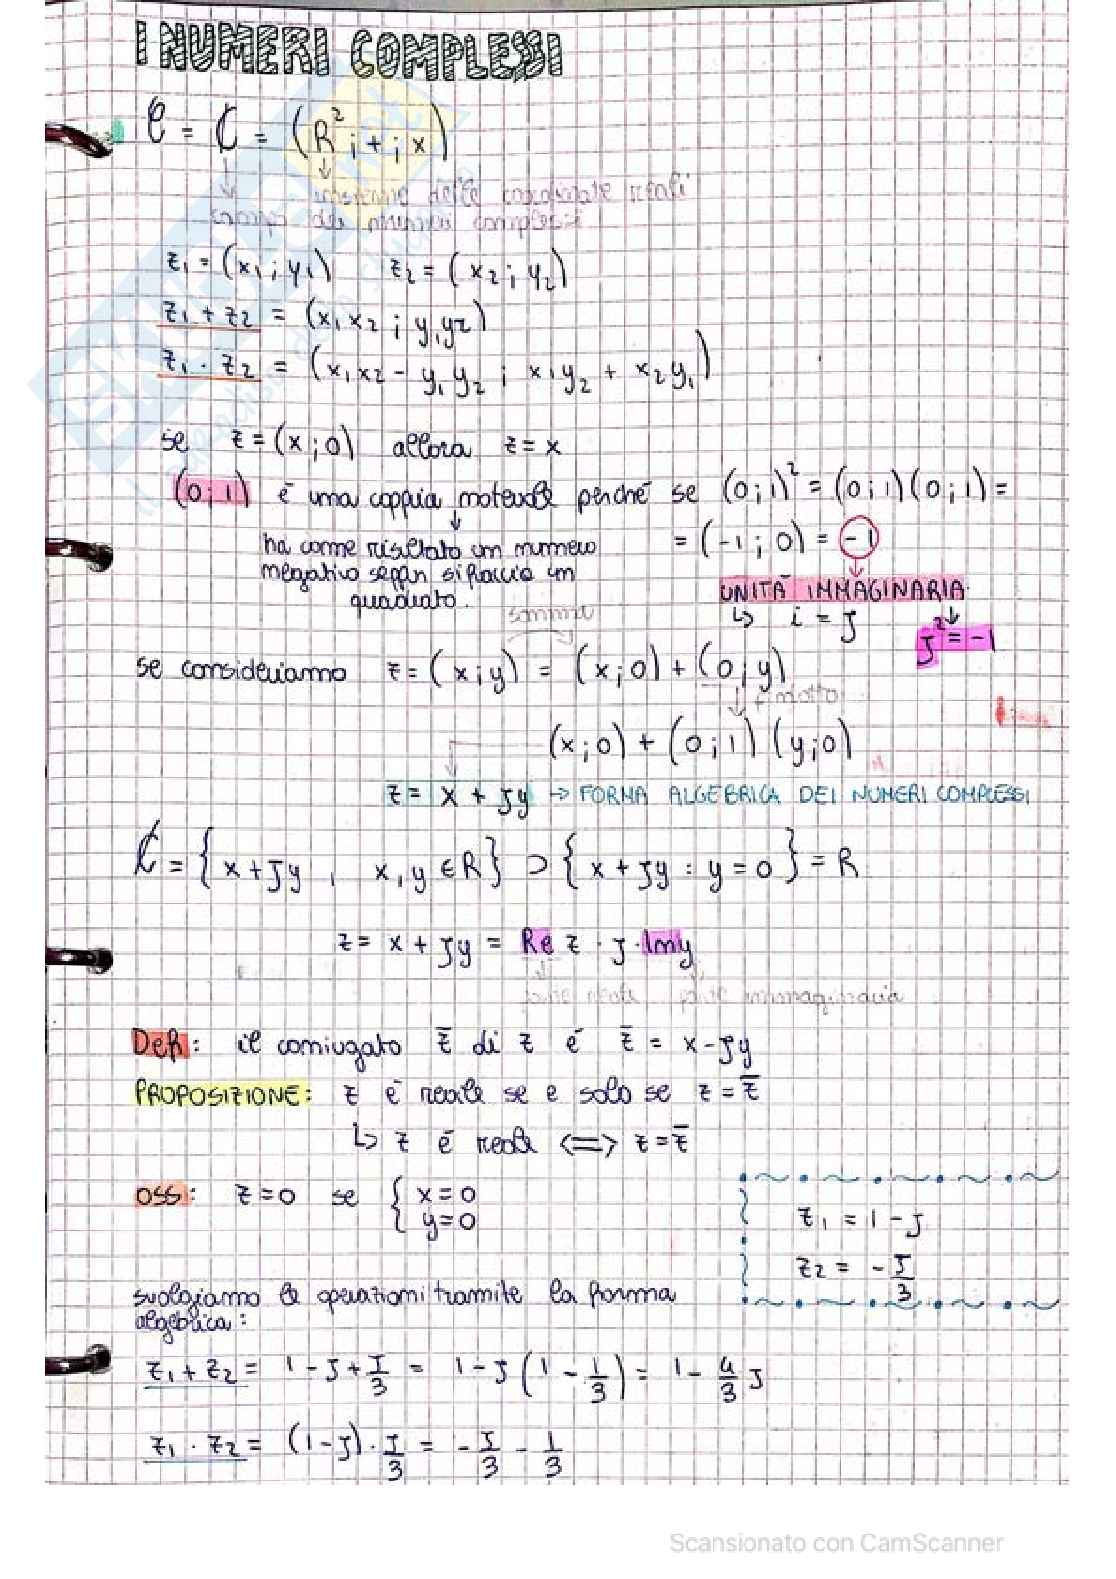 I NUMERI COMPLESSI
C = ℂ = (R² ; + ; x)
insieme delle coordinate reali
campo dei numeri complessi
z₁ = (x₁ ; y₁) z₂ = (x₂ ; y₂)
z₁ + z₂ = (x₁ x₂ ; y₁ y₂)
z₁ · z₂ = (x₁x₂ - y₁y₂ ; x₁y₂ + x₂y₁)
se z = (x ; 0) allora z = x
(0 ; 1) é una coppia perché se (0 ; 1)² = (0 ; 1)(0 ; 1) =
= (-1 ; 0) = -1
ha come risultato un numero
negativo seppn si faccia un
quadrato.
UNITÀ IMMAGINARIA
↳ i = J
J² = -1
somma
se consideriamo z = (x ; y) = (x ; 0) + (0 ; y)
(x ; 0) + (0 ; 1) (y ; 0)
z = x + Jy → FORMA ALGEBRICA DEI NUMERI COMPLESSI
ℂ = { x + Jy , x, y ∈ R } ⊃ { x + Jy : y = 0 } = R
z = x + Jy = Re z · J · Im y
parte reale parte immaginaria
Def: il coniugato z̄ di z é z̄ = x - Jy
PROPOSIZIONE: z é reale se e solo se z = z̄
↳ z é reale <=> z = z̄
OSS: z = 0 se { x = 0
y = 0
z₁ = 1 - J
z₂ = - J/3
svolgiamo le operazioni tramite la forma
algebrica:
z₁ + z₂ = 1 - J + J/3 = 1 - J (1 - 1/3) = 1 - 4/3 J
z₁ · z₂ = (1 - J) · J/3 = - J/3 - 1/3
Scansionato con CamScanner